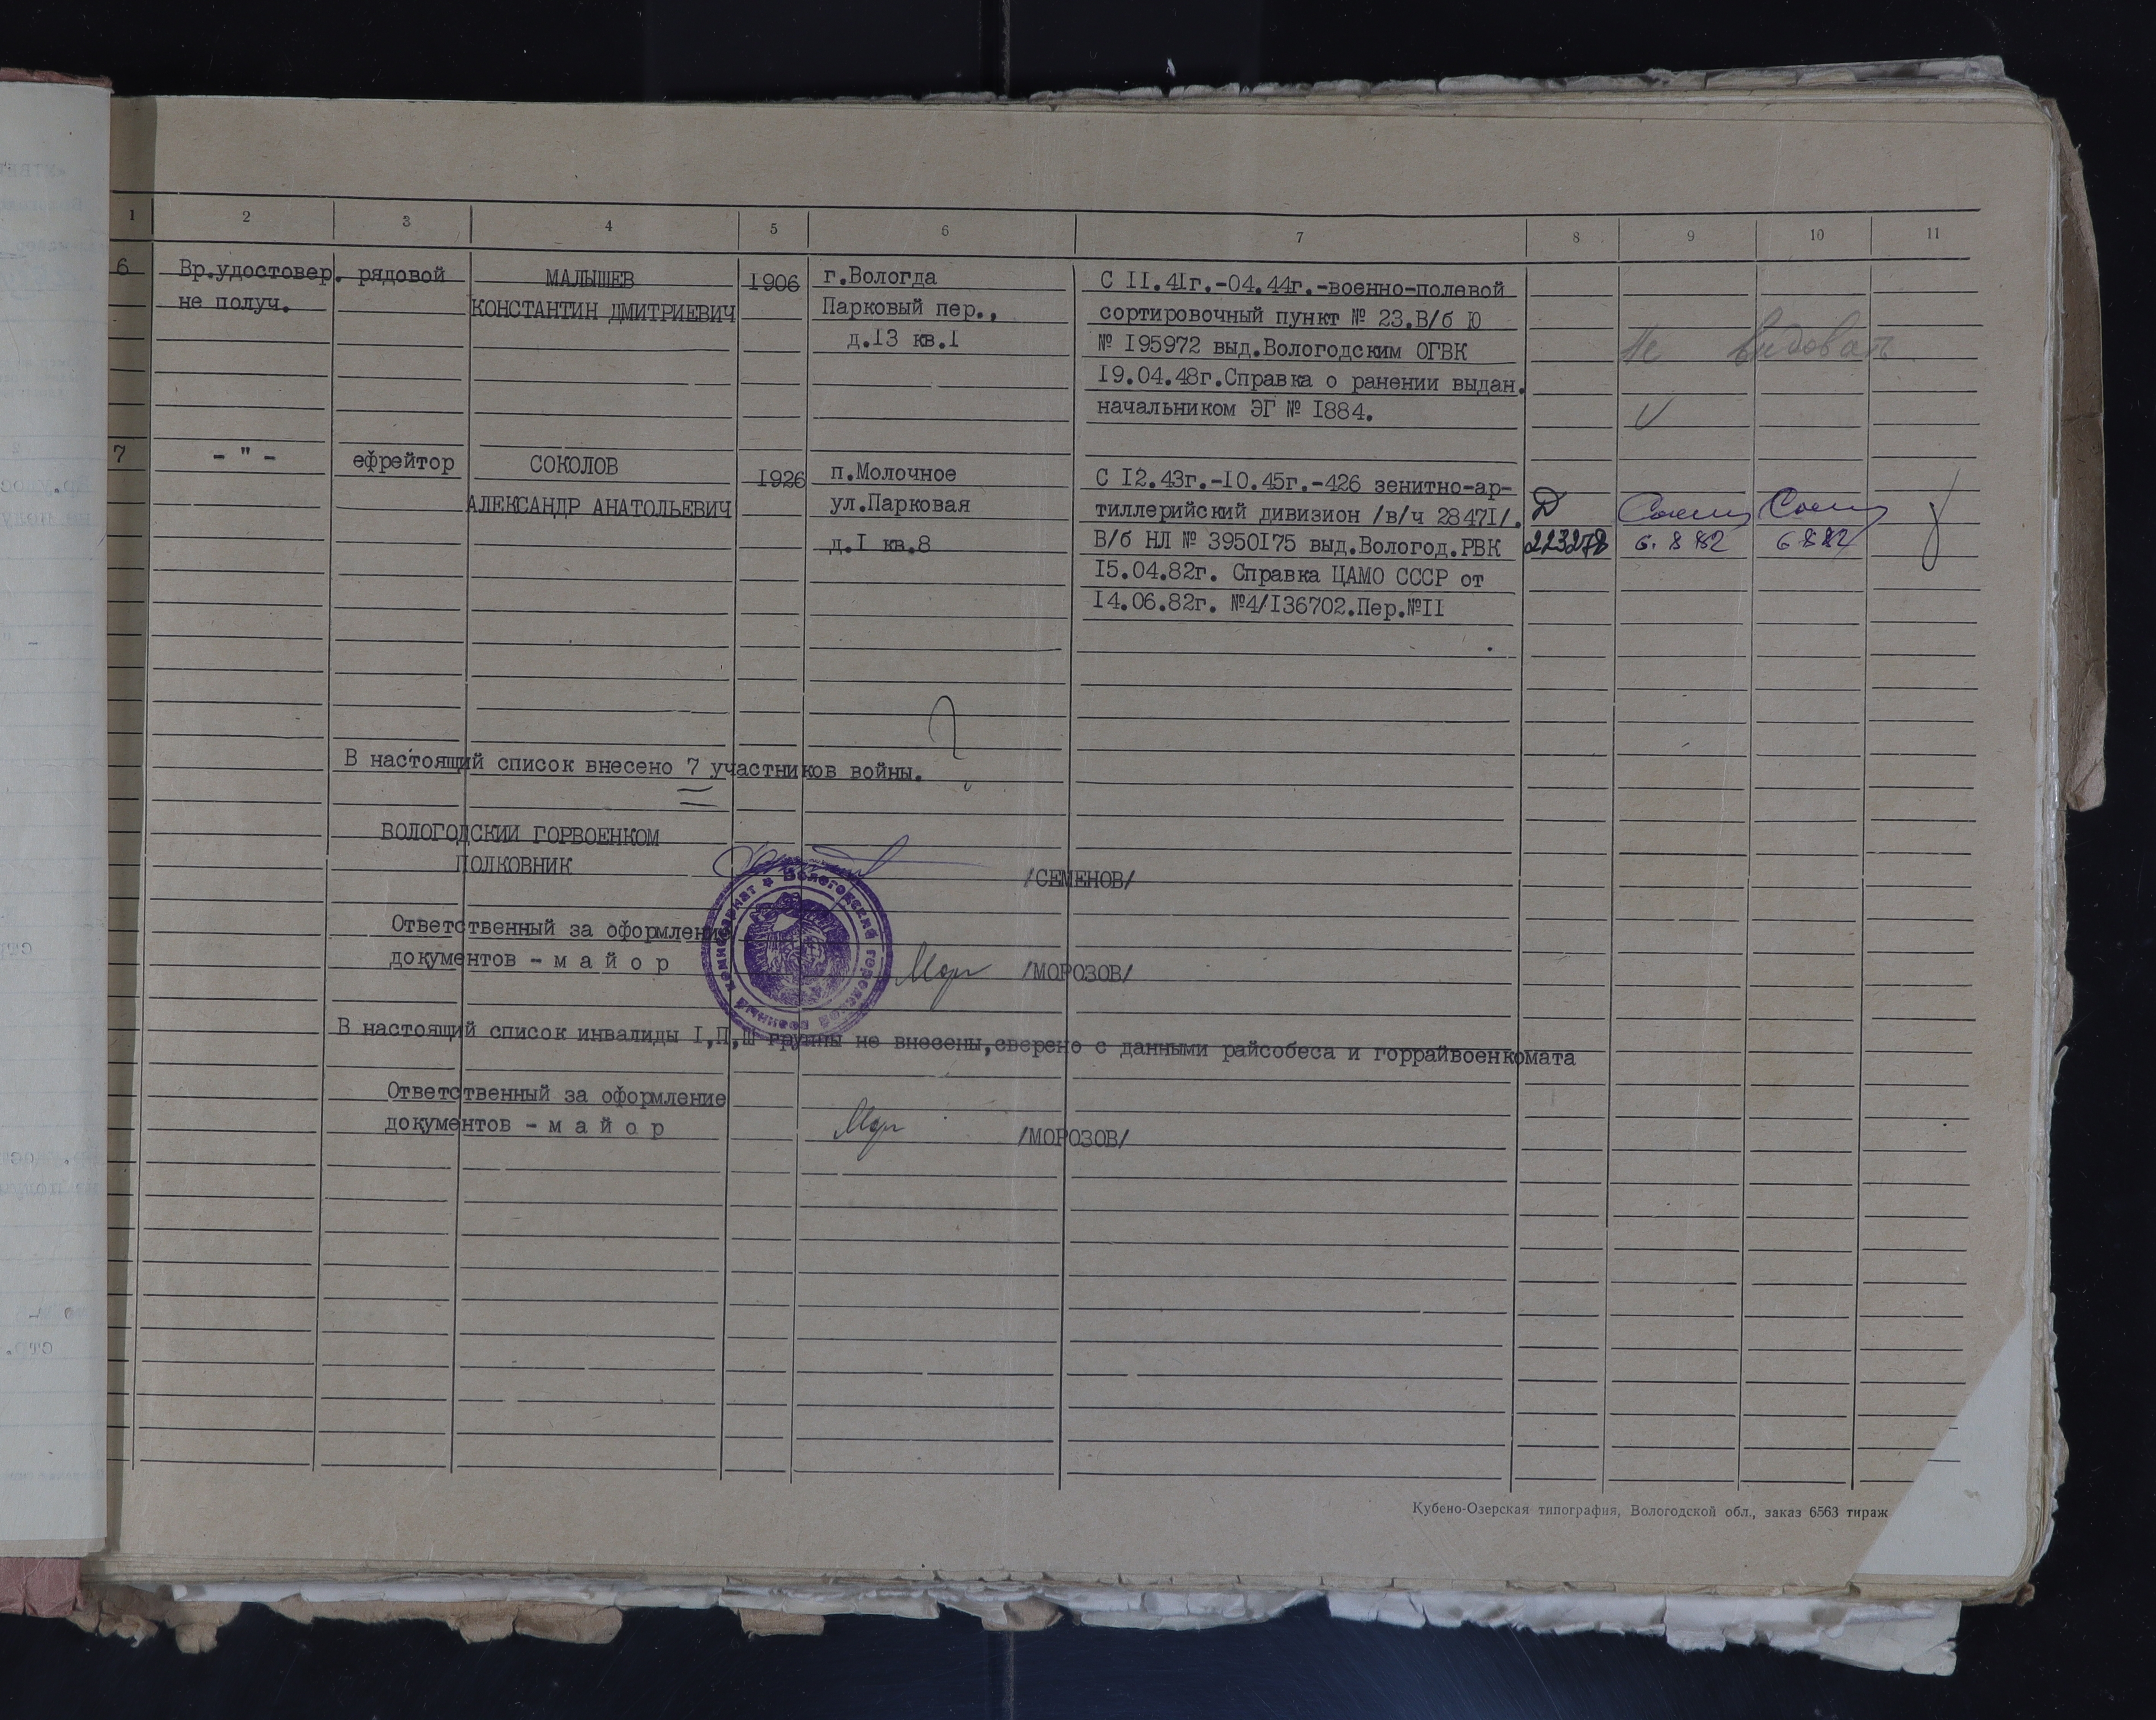 1 2 3 4 5 6 7 8 9 10 11
6 Вр.удостовер. рядовой МАЛЫШЕВ 1906 г.Вологда С II.41г.-04.44г.-военно-полевой
не получ. КОНСТАНТИН ДМИТРИЕВИЧ Парковый пер., сортировочный пункт № 23.В/б Ю
д.13 кв.1 № 195972 выд.Вологодским ОГВК Не
19.04.48г.Справка о ранении выдан.
начальником ЭГ № I884.
7 - " - ефрейтор СОКОЛОВ 1926 п.Молочное С I2.43г.-I0.45г.-426 зенитно-ар-
АЛЕКСАНДР АНАТОЛЬЕВИЧ ул.Парковая тиллерийский дивизион /в/ч 28471/. Д
д.I кв.8 В/б НЛ № 3950I75 выд.Вологод.РВК 223278 6.8 82 6 8 82
I5.04.82г. Справка ЦАМО СССР от
I4.06.82г. №4/I36702.Пер.№II
В настоящий список внесено 7 участников войны.
ВОЛОГОДСКИЙ ГОРВОЕНКОМ
ПОЛКОВНИК /СЕМЕНОВ/
Вологодский городской военный комиссариат
Ответственный за оформление
документов - м а й о р /МОРОЗОВ/
В настоящий список инвалиды I,П,Ш группы не внесены,сверено с данными райсобеса и горрайвоенкомата
Ответственный за оформление
документов - м а й о р /МОРОЗОВ/
Кубено-Озерская типография, Вологодской обл., заказ 6563 тираж